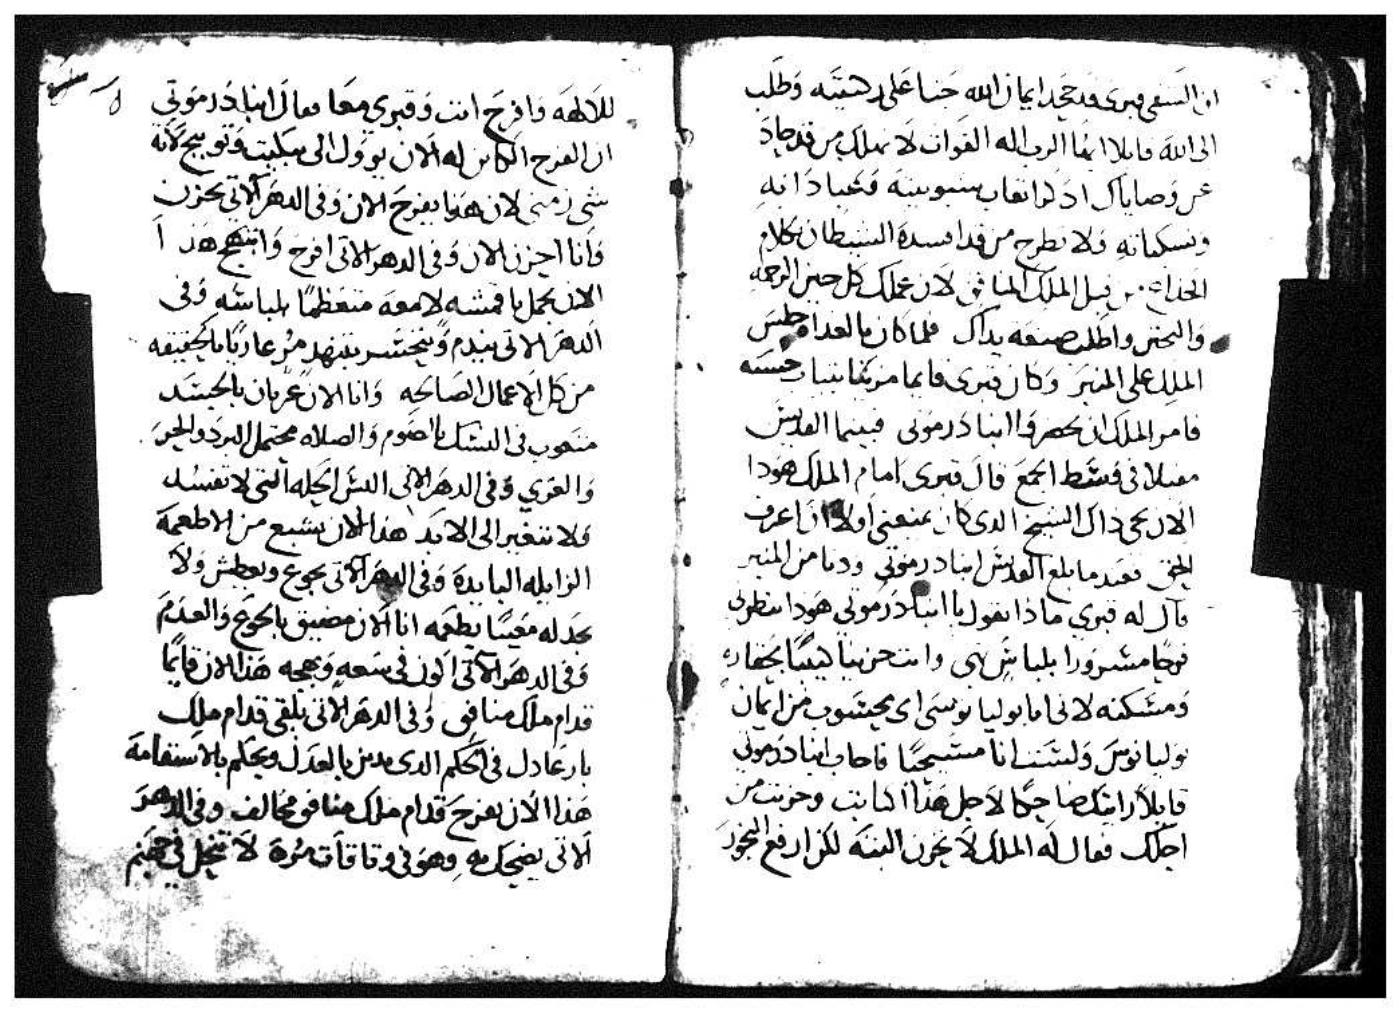 ان الشقي قبرى قد جحد ايمان الله جثا على ركبتيه وطلب
الى الله قايلا ايها الرب اله القوات لا تهلك من قد حاد
عن وصاياك اذكر اتعاب شيبوبيته وعباداته
ونسكياته ولا تطرح من قد افسده الشيطان بكلام
الخداع من قبل الملك المنافق لان عملك كل حين الرحمه
والتحنن واطلب صنعة يداك فلما كان بالغداه وجلس
الملك على المنبر وكان قبرى قايما مزينا بثياب حسنه
فامر الملك ان يحضروا انبا درموتى فبينما القديس
مقبلا فى وسط الجمع قال قبرى امام الملك هوذا
الان يجى ذاك الشيخ الذى كان يمنعنى اولا ان اعرف
الحق فعندما بلغ القديس انبا درموتى ودنا من المنبر
قال له قبرى ماذا تقول يا انبا درموتى هوذا تنظرنى
فرحا مسرورا بلباس بهى وانت حزينا كيبا بحقاره
ومسكنه لانى انا يوليانوس اى محسوب من ايمان
يوليانوس ولست انا مسيحيا فاجاب انبا درموتى
قايلا رايتك ضاحكا لاجل هذا انا بكيت وحزنت من
اجلك فقال له الملك لا تحزن البته لكن ارفع البخور
للالهه وافرح انت وقبرى معا فقال انبا درموتى
ان الفرح الكاين له الان يوول الى تبكيت وتوبيخ لانه
شى زمنى لان هذا يفرح الان وفى الدهر الاتى يحزن
وانا احزن الان وفى الدهر الاتى افرح وابتهج هذا
الان يجمل باقمشه لامعه متعظما بلباسه وفى
الدهر الاتى يندم ويتحسر بتنهد مر عاريا بالحقيقه
من كل الاعمال الصالحه وانا الان عريان بالجسد
متعوب فى النسك بالصوم والصلاه محتمل البرد والحر
والعري وفى الدهر الاتى البس الحله التى لا تفسد
ولا تتغير الى الابد هذا الان يشبع من الاطعمه
الزايله البايده وفى الدهر الاتى يجوع ويعطش ولا
يجد له مغيثا يطعمه انا الان مضيق بالجوع والعدم
وفى الدهر الاتى اكون فى سعه وبهجه هذا الان قايما
قدام ملك منافق وفى الدهر الاتى يلقى قدام ملك
بار عادل فى الحكم الذى يدين بالعدل ويحكم بالاستقامه
هذا الان يفرح قدام ملك منافق مخالف وفى الدهر
الاتى يضحك به وهو فى وثاقات مره لا تنحل فى جهنم